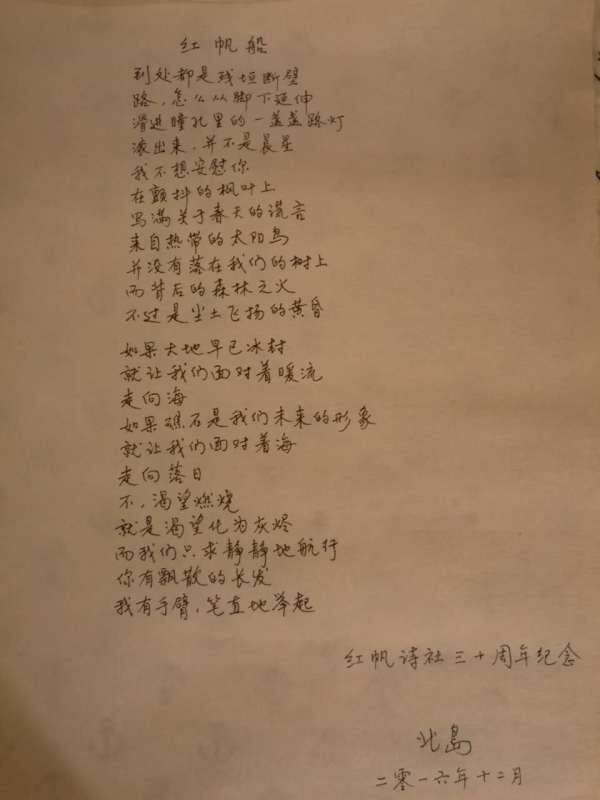 红帆船
到处都是残垣断壁
路，怎么从脚下延伸
滑进瞳孔里的一盏盏路灯
滚出来，并不是晨星
我不想安慰你
在颤抖的枫叶上
写满关于春天的谎言
来自热带的太阳鸟
并没有落在我们的树上
而背后的森林之火
不过是尘土飞扬的黄昏
如果大地早已冰封
就让我们面对着暖流
走向海
如果礁石是我们未来的形象
就让我们面对着海
走向落日
不，渴望燃烧
就是渴望化为灰烬
而我们只求静静地航行
你有飘散的长发
我有手臂，笔直地举起
红帆诗社三十周年纪念
北岛
二零一六年十二月